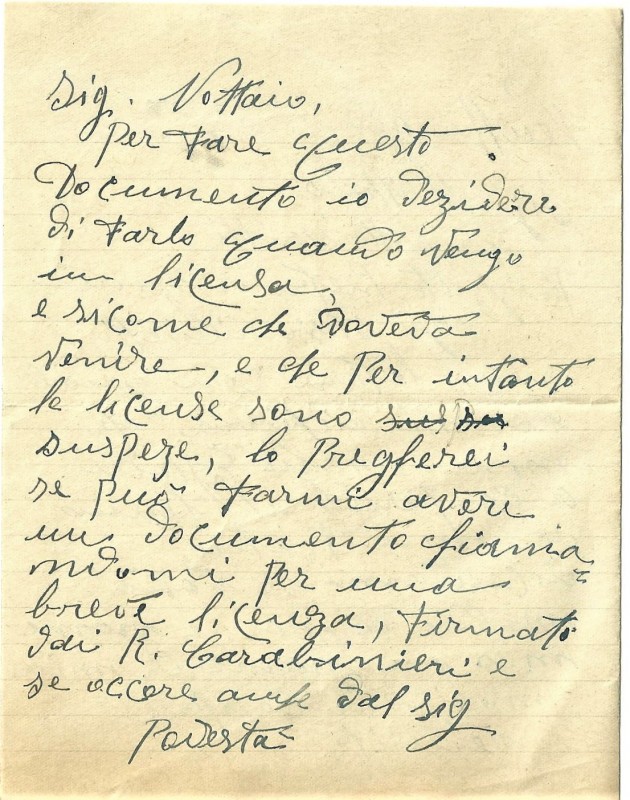 Sig. Nottaio,
Per Fare Questo
Documento io dezidere
di Farlo Quando Vengo
in licensa,
e sicome che doveva
Venire, e che Per intanto
le license sono sus
suspeze, lo Pregherei
se può Farmi avere
un documento chiama
ndomi per una
breve licenza, Firmato
dai R. Carabinieri e
se occore anche dal sig
Podestà